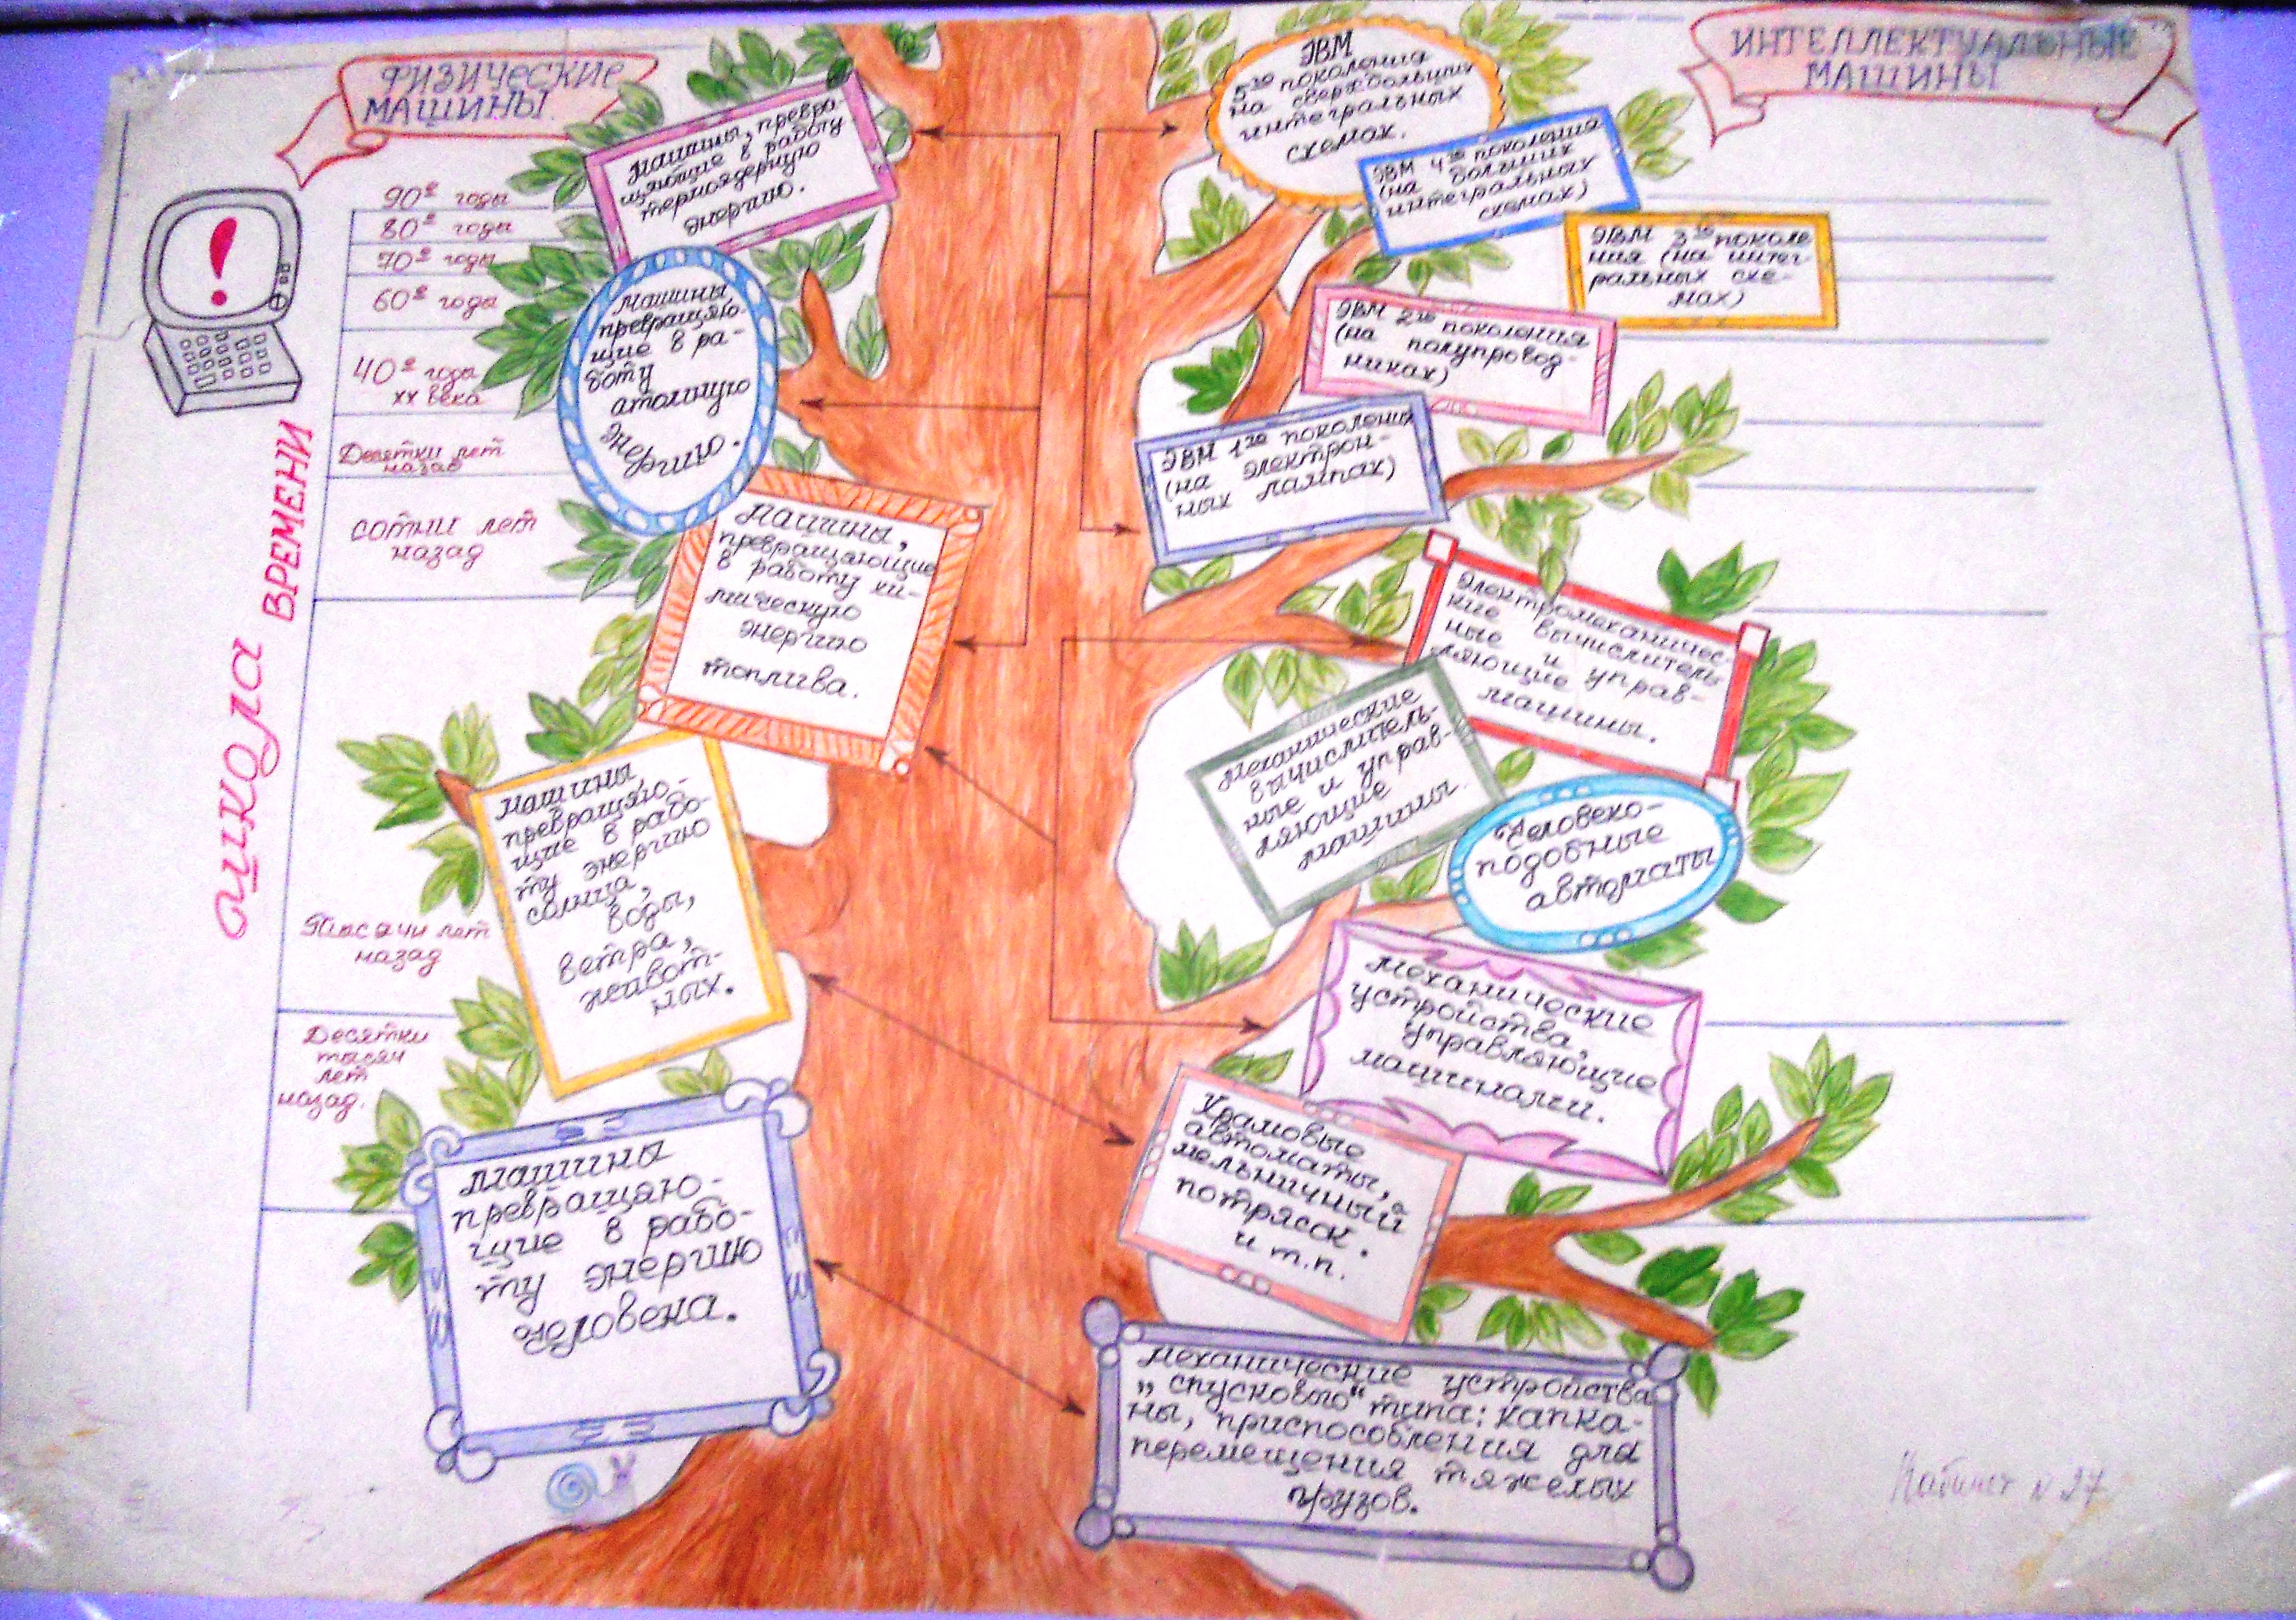 ФИЗИЧЕСКИЕ
МАШИНЫ.
ИНТЕЛЛЕКТУАЛЬНЫЕ
МАШИНЫ
шкала ВРЕМЕНИ
90е годы
80е годы
70е годы
60е года
40е года
XX века
Десятки лет
назад
сотни лет
назад
Тысячи лет
назад
Десятки
тысяч
лет
назад.
Машины, превра-
щающие в работу
термоядерную
энергию.
Машины
превращаю-
щие в ра-
боту
атомную
энергию.
Машины,
превращающие
в работу хи-
мическую
энергию
топлива.
Машины
превращаю-
щие в рабо-
ту энергию
солнца,
воды,
ветра,
живот-
ных.
Машины
превращаю-
щие в рабо-
ту энергию
человека.
ЭВМ
5го поколения
на сверхбольших
интегральных
схемах.
ЭВМ 4го поколения
(на больших
интегральных
схемах)
ЭВМ 3го поколе
ния (на интег-
ральных схе-
мах)
ЭВМ 2го поколения
(на полупровод-
никах)
ЭВМ 1го поколения
(на электрон-
ных лампах)
Электромеханичес-
кие вычислитель-
ные и управ-
ляющие
машины.
Механические
вычислитель-
ные и управ-
ляющие
машины.
Человеко-
подобные
автоматы
Механические
устройства,
управляющие
машинами.
Храмовые
автоматы,
мельничный
потрясок.
и т.п.
Механические устройства
„спускового“ типа: капка-
ны, приспособления для
перемещения тяжелых
грузов.
Кабинет N 27